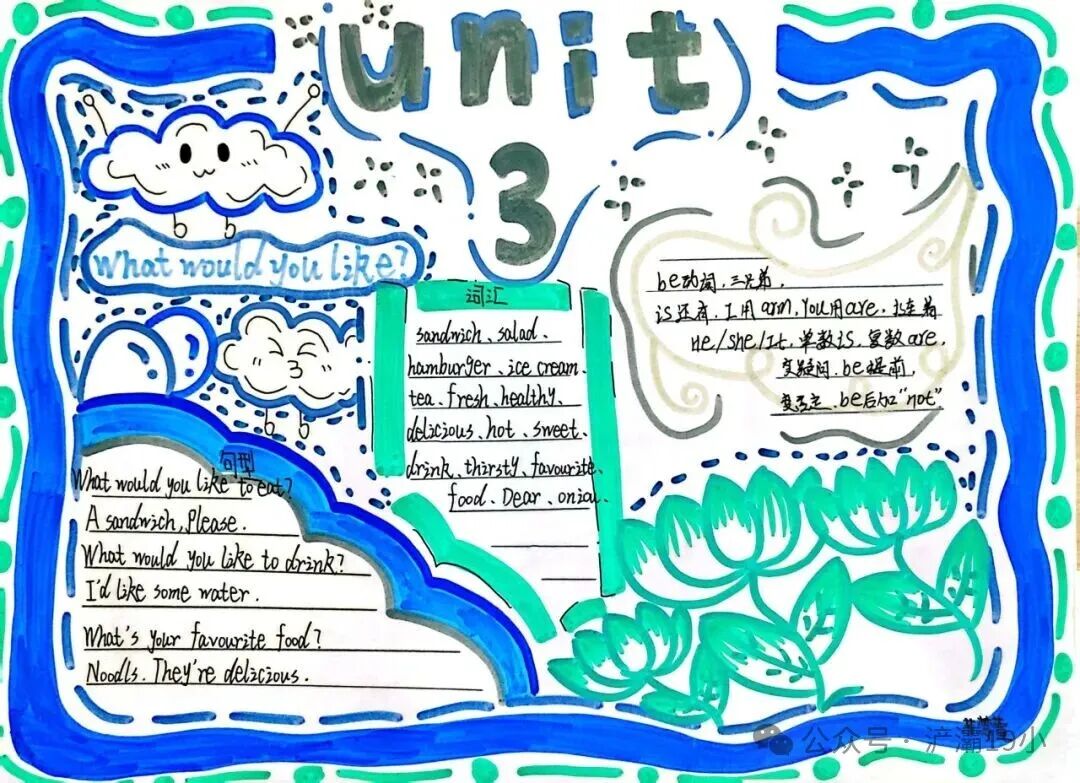 unit
3
What would you like?
词汇
sandwich、salad、
hamburger、ice cream、
tea、fresh、healthy、
delicious、hot、sweet、
drink、thirsty、favourite、
food、Dear、onion、
be动词，三兄弟，
is还有，I用am，You用are，连着
He/she/It，单数is，复数are，
变疑问，be提前，
变否定，be后加"not"
句型
What would you like to eat?
A sandwich, Please.
What would you like to drink?
I'd like some water.
What's your favourite food?
Noodls. They're delicious.
公众号·浐灞19小